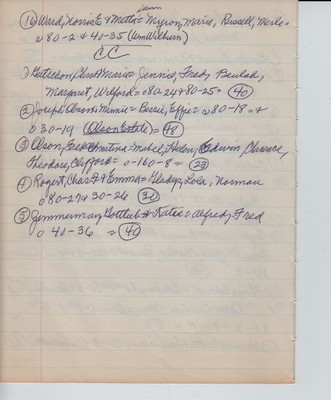 Lawson
16 Wred, Norris E & Metta = Myron, Marie, Russell, Merle =
080-2 & 40-35 (Wm Wilburn)
CC
1) Gutreson, Chris & Marie = Jennie, Fred, Beulah,
Margaret, Wilford = 080-24 & 80-25 = 40
2 Joseph Olson & Minnie = Bessie, Effie = 080-18 = &
0 30-19 (Olson Estate) = 48
3 Olson, Fred & = Mabel, Helen, Edwin, Clarence,
Theodore, Clifford = 0-160-8 = 23
4 Rogert, Chas F & Emma = Gladys, Lola, Norman
080-27 & 30-26 30
5 Zimmerman, Gottlieb & Katie = Alfred, Fred
0 40-36 = 40